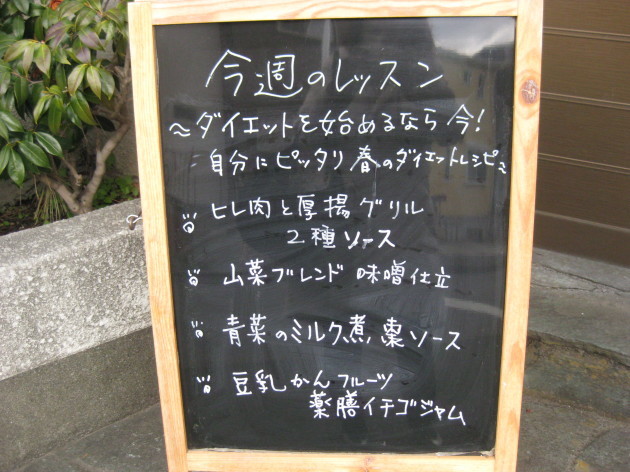 今週のレッスン
～ダイエットを始めるなら今!
自分にピッタリ春のダイエットレシピ～
ヒレ肉と厚揚グリル
2種ソース
山菜ブレンド 味噌仕立
青菜のミルク煮 棗ソース
豆乳かんフルーツ
薬膳イチゴジャム